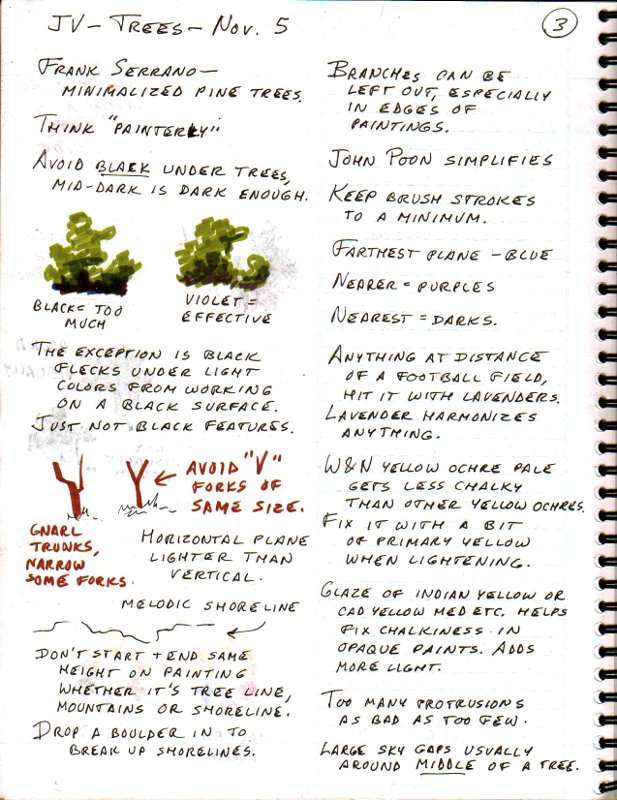 JV - Trees - Nov. 5
3
Frank Serrano -
minimalized pine trees.
Think "painterly"
Avoid black under trees,
mid-dark is dark enough.
Black = too
much
Violet =
effective
The exception is black
flecks under light
colors from working
on a black surface.
Just not black features.
Avoid "V"
forks of
same size.
Gnarl
trunks,
narrow
some forks.
Horizontal plane
lighter than
vertical.
Melodic shoreline
Don't start + end same
height on painting
whether it's tree line,
mountains or shoreline.
Drop a boulder in to
break up shorelines.
Branches can be
left out, especially
in edges of
paintings.
John Poon simplifies
Keep brush strokes
to a minimum.
Farthest plane - blue
Nearer = purples
Nearest = darks.
Anything at distance
of a football field,
hit it with lavenders.
Lavender harmonizes
anything.
W&N yellow ochre pale
gets less chalky
than other yellow ochres.
Fix it with a bit
of primary yellow
when lightening.
Glaze of indian yellow or
cad yellow med etc. helps
fix chalkiness in
opaque paints. Adds
more light.
Too many protrusions
as bad as too few.
Large sky gaps usually
around middle of a tree.